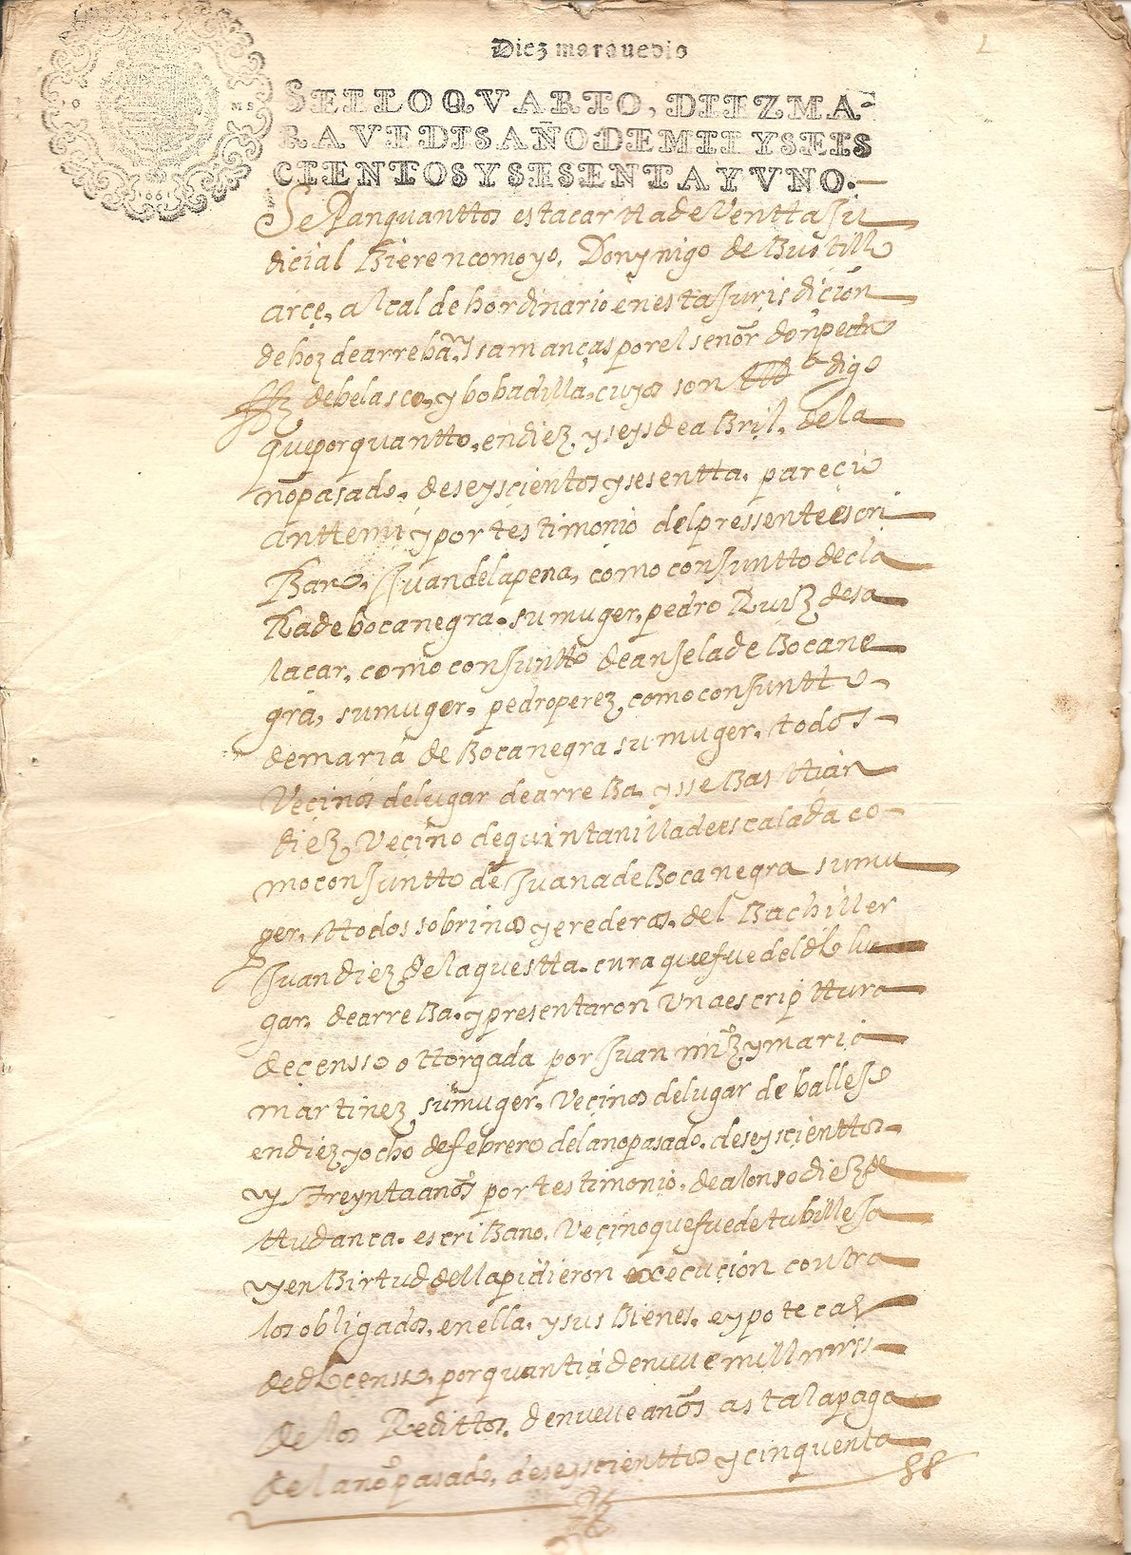 2
Diez marauedis
SELLO QVARTO, DIEZ MA-
RAVEDIS AÑO DE MIL Y SEIS
CIENTOS Y SESENTA Y VNO.
Sepan quanttos esta cartta de Ventta Ju
dicial Bieren como yo, Don ynigo de Bustill
arce, alcalde hordinario en esta Jurisdiçión
de hoz de arreba, y samanças por el senor don pedro
frz de belasco, y bobadilla, cuyas son digo
que por quantto, en diez, y seys de aBril, dela
no pasado, de seyscientos y sesentta, pareció
antte mi y por testimonio del pressente escri
Bano, Juan de la pena, como conJuntto de cla
Ra de bocanegra, su muger, pedro RuiZ de sa
lacar, como conJuntto de anJela de Bocane
gra, su muger, pedro perez, como conJuntto
de maria de Bocanegra su muger, todos
Veçinos del lugar de arreBa, y sseBasttian
diez, Veçino de quintanilla de escalada co
mo conJuntto de Juana de Bocanegra su mu
ger, ttodos sobrinos y erederos, del Bachiller
Juan diez de la questta, cura que fue del dho lu
gar, de arreBa, y presentaron Vna escripttura
de çensso ottorgada por Juan mrz y maria
martinez su muger, Veçinos del lugar de ballejo
en diez y ocho de febrero del ano pasado, de seyscienttos
y treynta anos por testimonio, de alonso diez de
ttudanca, escriBano, Veçino que fue de tubilleja
y en Birtud della pidieron execuçion contra
los obligados, en ella, y sus Bienes, e ypotecas
de dho censso, por quantia de nueue mill mrs
de los Redittos, de nueue anos asta la paga
del ano pasado, de seyscienttos y cinquenta